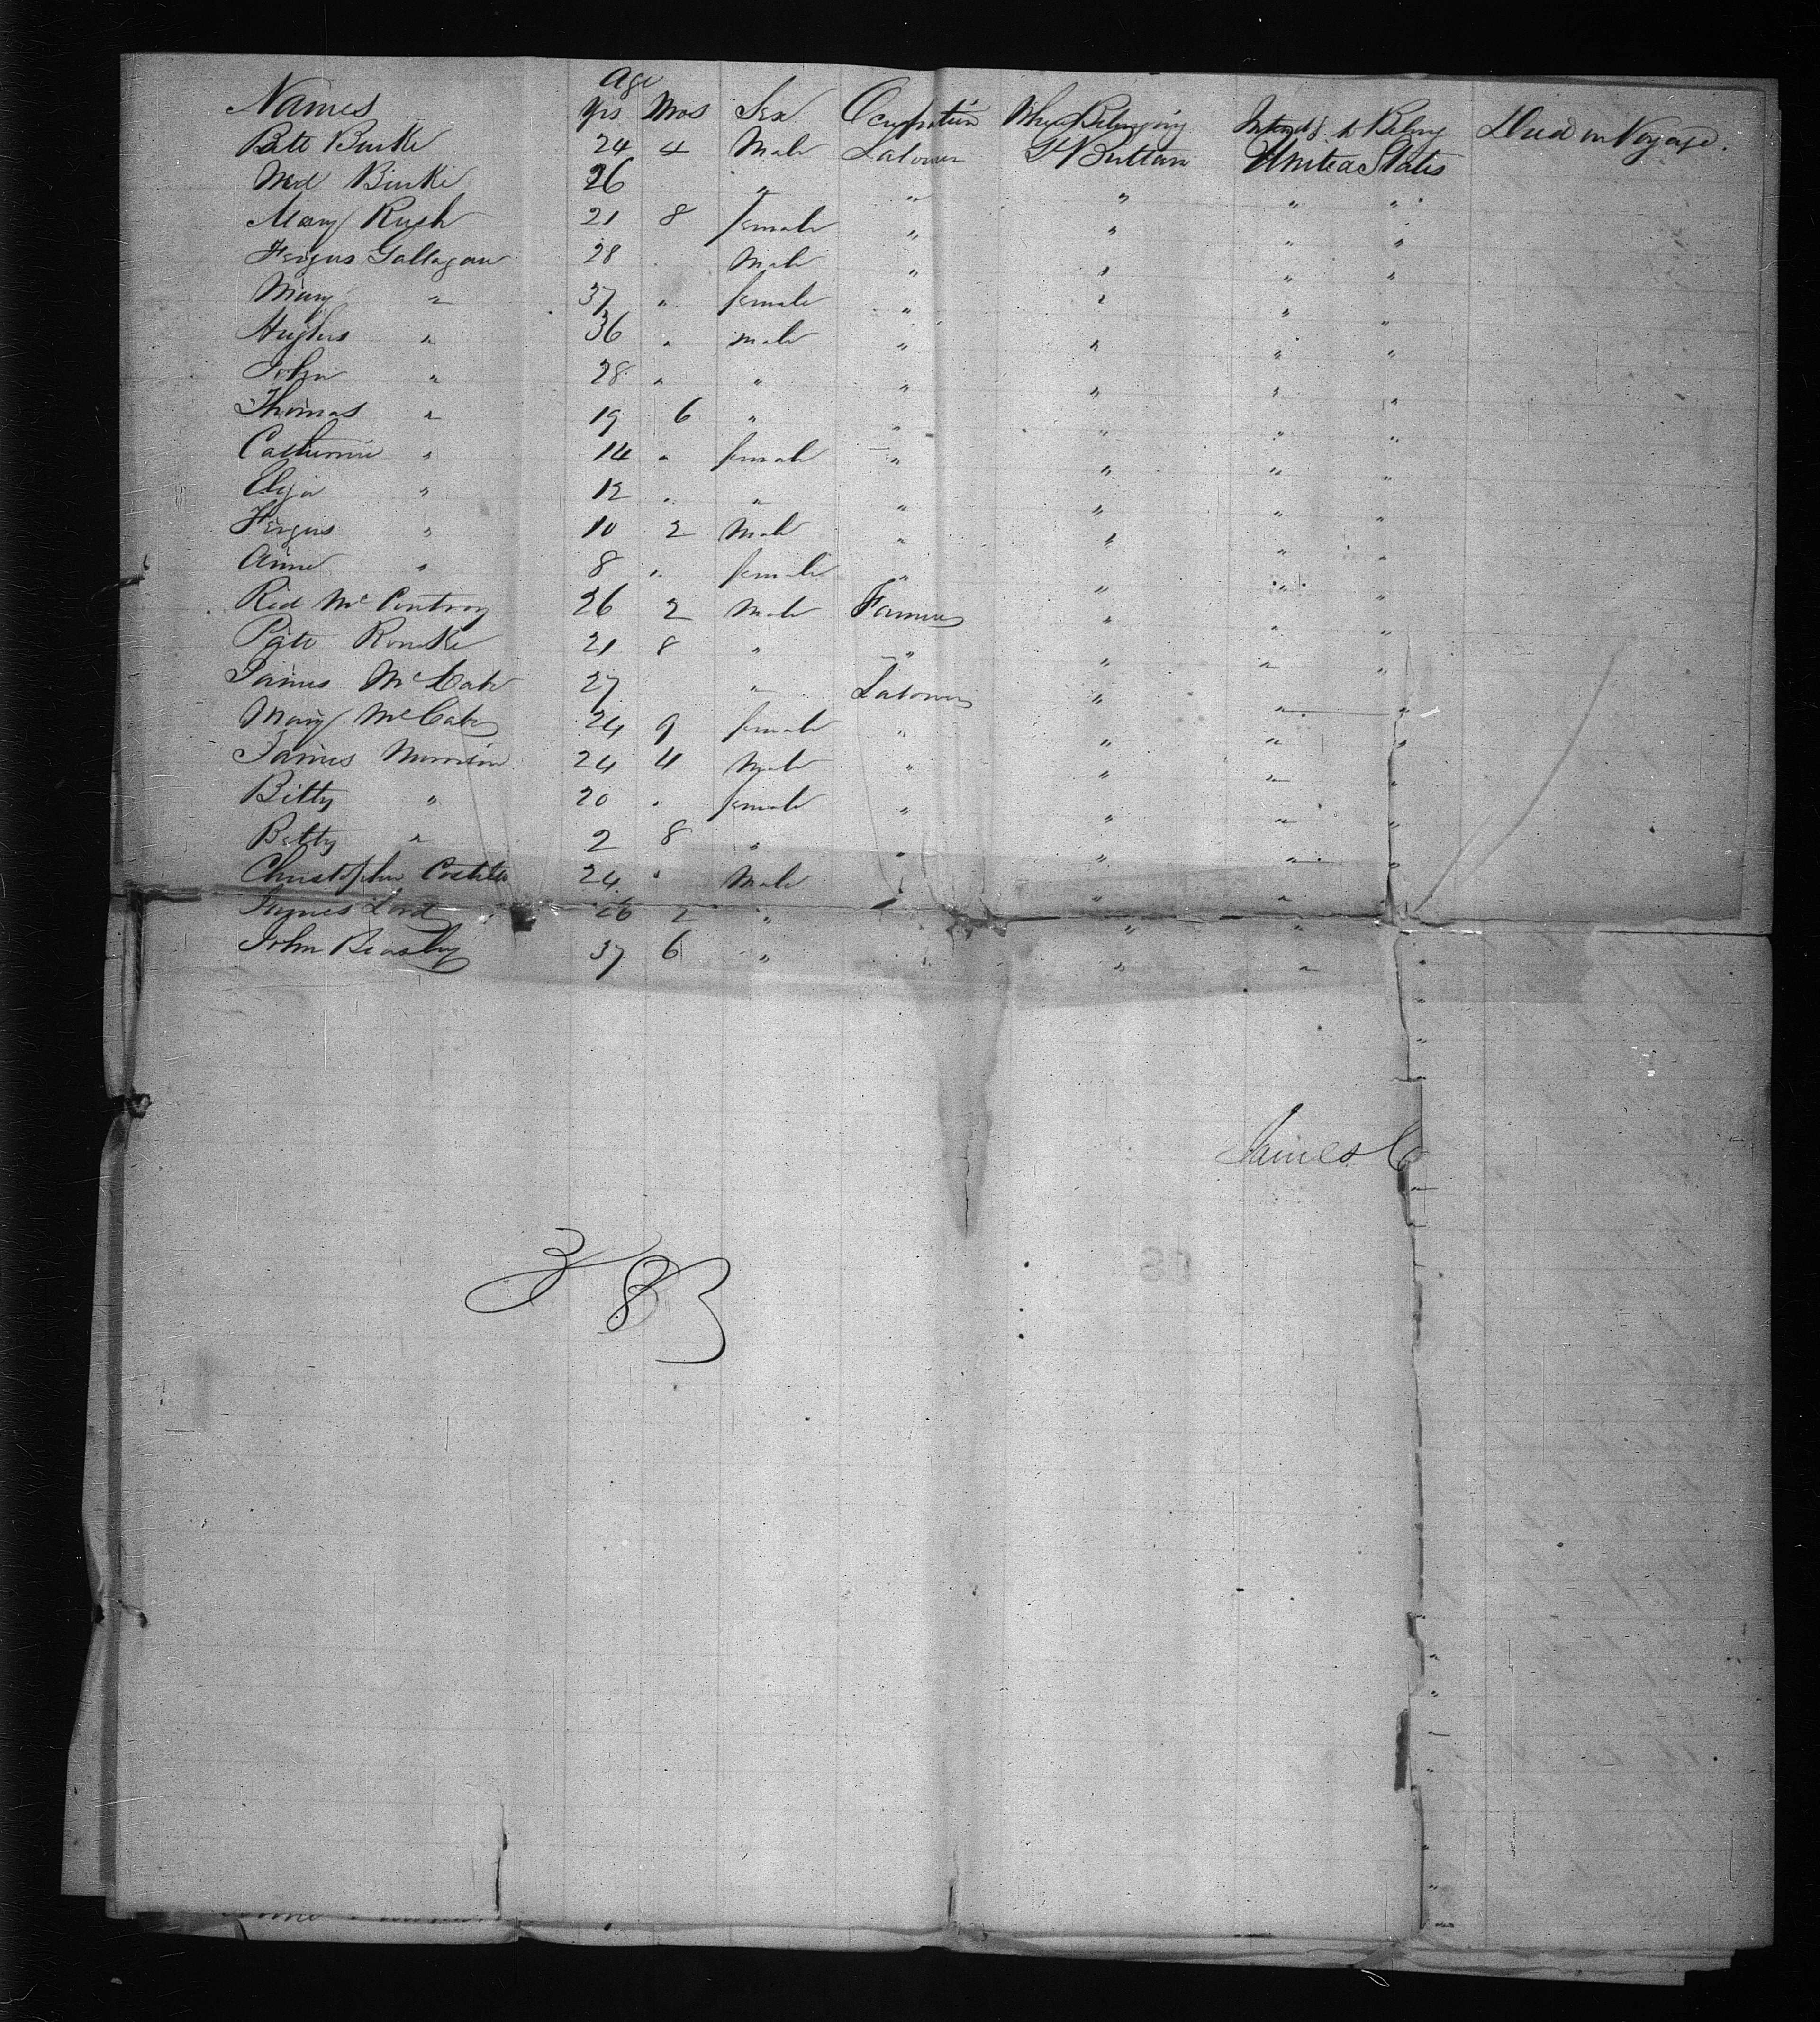 Age
Names Yrs Mos Sex Occupation Where Belonging Intend'g to Belong Died on Voyage.
Patt Burke 24 4 Male Laborer Gt Brittan United States
Burke 26 " " " " "
Mary Rush 21 8 female " " " "
Fergus Gallagan 28 Male " " " "
Mary " 37 " female " " " "
Hughes " 36 " male " " " "
John " 28 " " " " " "
Thomas " 19 6 " " " " "
Catherine " 14 " female " " " "
Eliza " 12 " " " " " "
Fergus " 10 2 Male " " " "
Anne " 8 " female " " " "
Red Mc 26 2 Male Farmer " " "
Patt 21 8 " " " " "
James McCabe 27 " Laborer " " "
Mary McCabe 24 9 female " " " "
James Morrison 24 4 Male " " " "
Bitty " 20 " female " " " "
Betty " 2 8 " " " " "
Christopher Costello 24 " Male " " "
James Lord 26 2 " " "
John Beasley 37 6 " " " "
James C
383